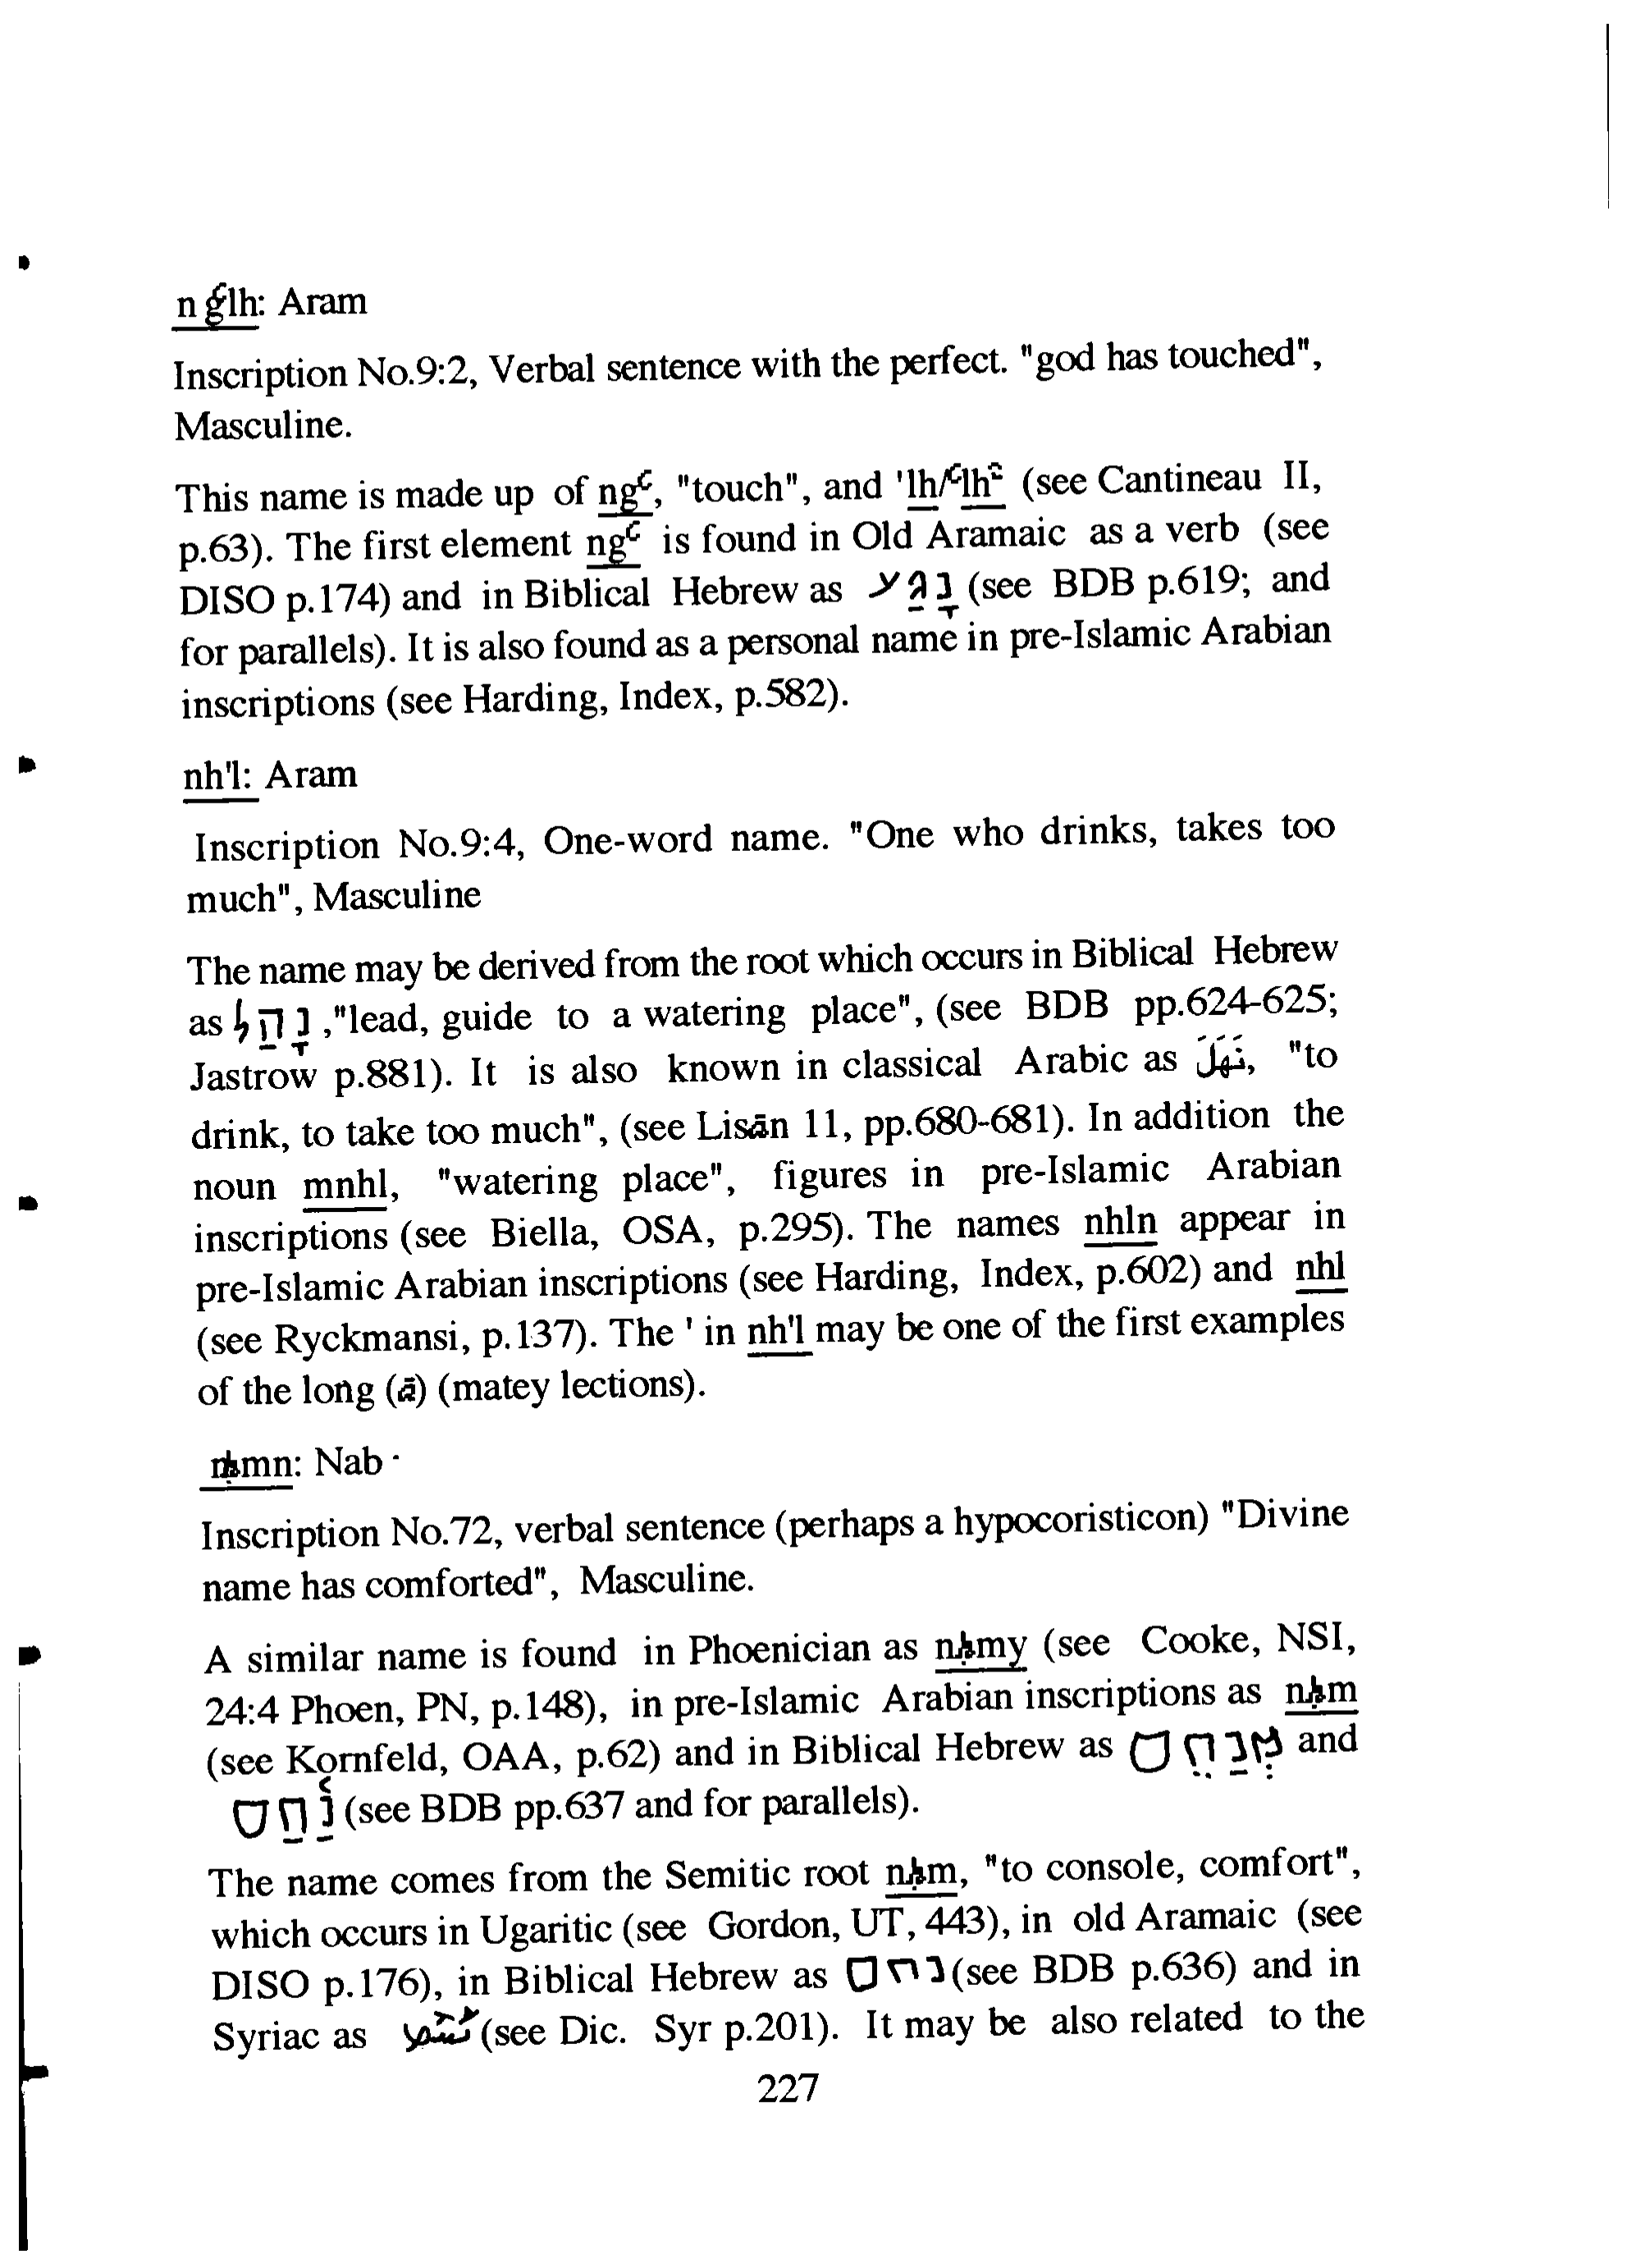 n gʿlh: Aram
Inscription No.9:2, Verbal sentence with the perfect. "god has touched",
Masculine.
This name is made up of ngʿ, "touch", and 'lh/ʿlhʿ (see Cantineau II,
p.63). The first element ngʿ is found in Old Aramaic as a verb (see
DISO p.174) and in Biblical Hebrew as נָגַע (see BDB p.619; and
for parallels). It is also found as a personal name in pre-Islamic Arabian
inscriptions (see Harding, Index, p.582).
nh'l: Aram
Inscription No.9:4, One-word name. "One who drinks, takes too
much", Masculine
The name may be derived from the root which occurs in Biblical Hebrew
as נָהַל ,"lead, guide to a watering place", (see BDB pp.624-625;
Jastrow p.881). It is also known in classical Arabic as نَهَلَ, "to
drink, to take too much", (see Lisān 11, pp.680-681). In addition the
noun mnhl, "watering place", figures in pre-Islamic Arabian
inscriptions (see Biella, OSA, p.295). The names nhln appear in
pre-Islamic Arabian inscriptions (see Harding, Index, p.602) and nhl
(see Ryckmansi, p.137). The ' in nh'l may be one of the first examples
of the long (ā) (matey lections).
nḥmn: Nab
Inscription No.72, verbal sentence (perhaps a hypocoristicon) "Divine
name has comforted", Masculine.
A similar name is found in Phoenician as nḥmy (see Cooke, NSI,
24:4 Phoen, PN, p.148), in pre-Islamic Arabian inscriptions as nḥm
(see Kornfeld, OAA, p.62) and in Biblical Hebrew as מְנַחֵם and
נַחַם (see BDB pp.637 and for parallels).
The name comes from the Semitic root nḥm, "to console, comfort",
which occurs in Ugaritic (see Gordon, UT, 443), in old Aramaic (see
DISO p.176), in Biblical Hebrew as נחם (see BDB p.636) and in
Syriac as (see Dic. Syr p.201). It may be also related to the
227